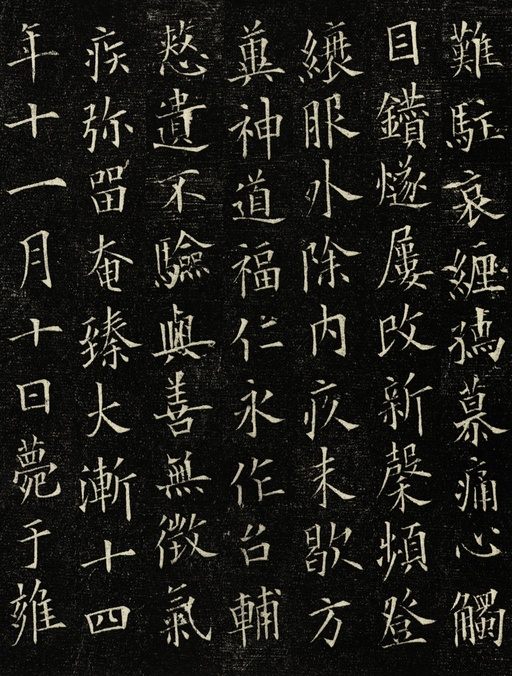 難駐哀纏孺慕痛心觸
目鑽燧屢改新馨頻登
縗服外除内疚未歇方
冀神道福仁永作台輔
憗遺不驗與善無徵氣
疾弥留奄臻大漸十四
年十一月十日薨于雍